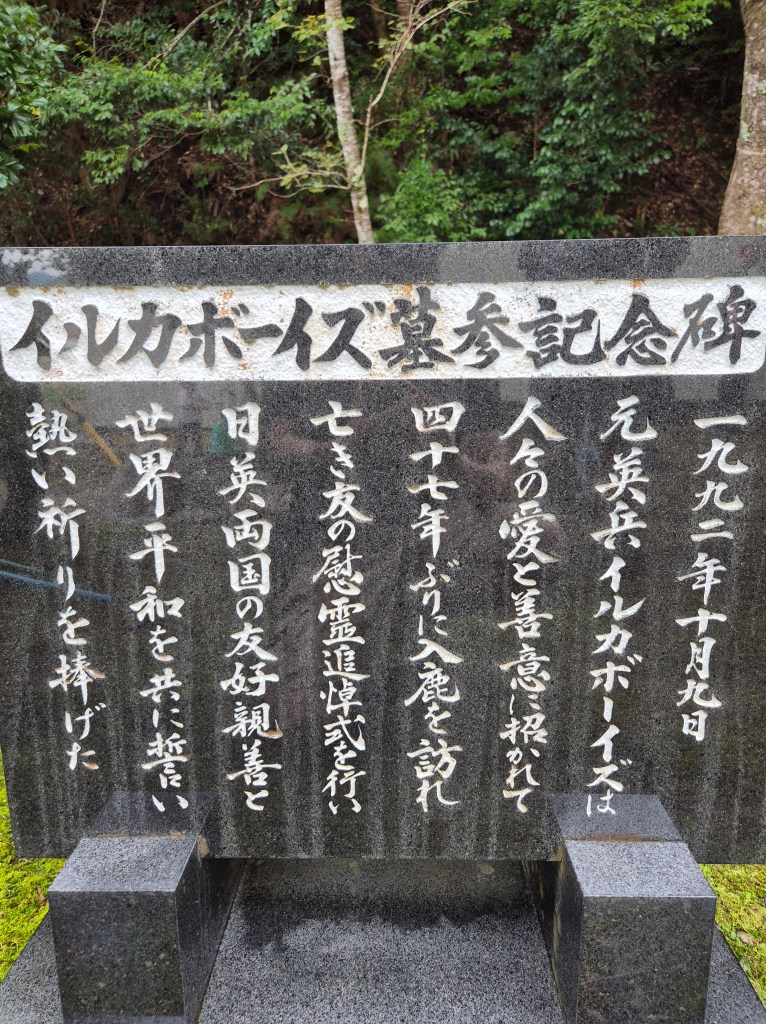 イルカボーイズ墓参記念碑
一九九二年十月九日
元英兵イルカボーイズは
人々の愛と善意に招かれて
四十七年ぶりに入鹿を訪れ
亡き友の慰霊追悼式を行い
日英両国の友好親善と
世界平和を共に誓い
熱い祈りを捧げた